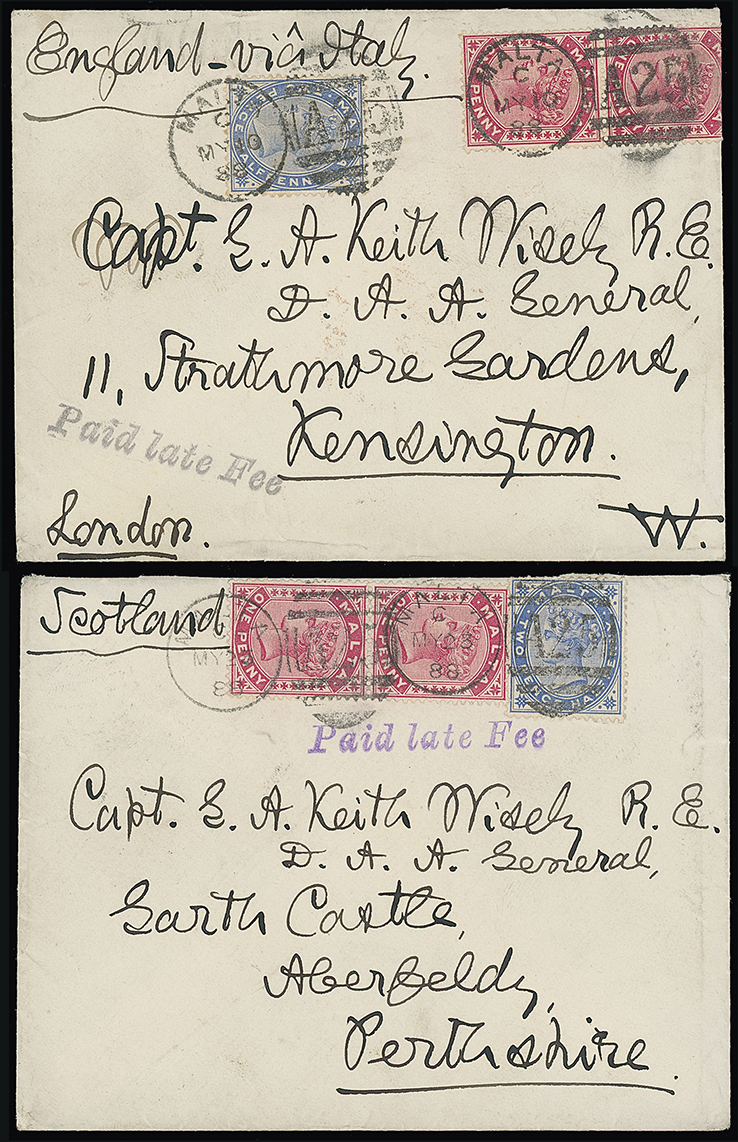 England - viâ Italy.
MALTA
C
MY 19
88
A 25
MALTA
C
MY 19
88
ONE PENNY
MALTA
Capt. G. A. Keith Wisely R.E.
D. A. A. General,
11, Strathmore Gardens,
Kensington.
Paid late Fee
London.
W.
Scotland
ONE PENNY
MALTA
MALTA
C
MY 25
88
ONE PENNY
MALTA
A 25
MALTA
TWO PENCE HALF PENNY
Paid late Fee
Capt. G. A. Keith Wisely R. E.
D. A. A. General,
Garth Castle,
Aberfeldy,
Perthshire.